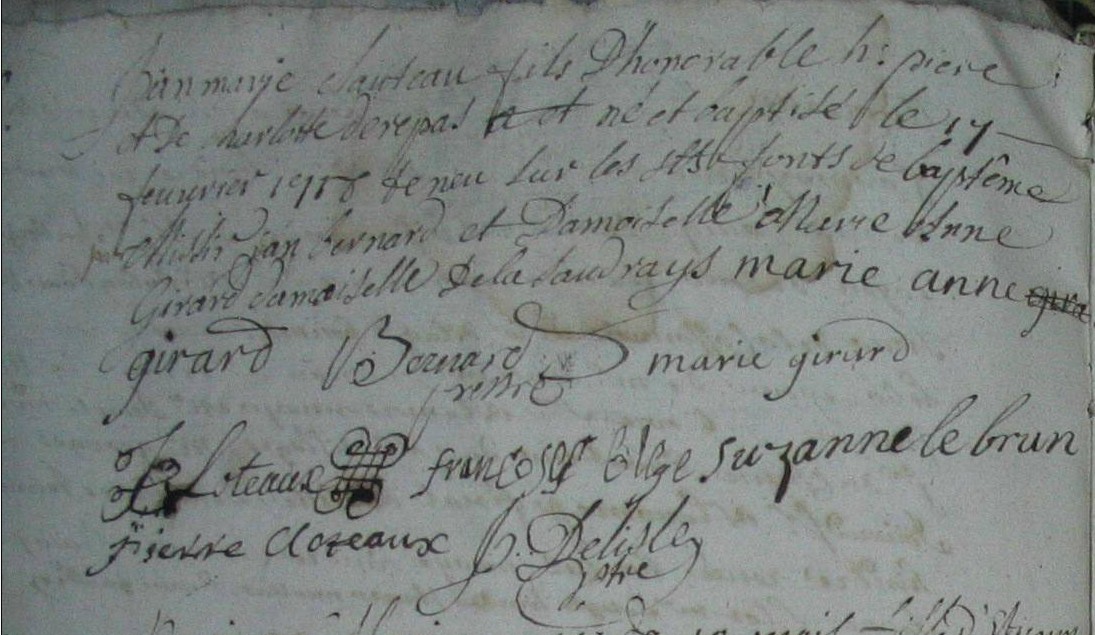 jean marie clauteau fils D'honorable h: piere
et De charlotte derepas a èt né et baptisé le 17
feuvrier teneu sur les fonts de baptême
par Missir jan bernard et Damoiselle Marie Anne
Girard damoiselle De la Saudrays marie anne gira
girard Bernard marie girard
prestre
Cloteaux françoise suzanne le brun
pierre cloteaux Delisle
ptre